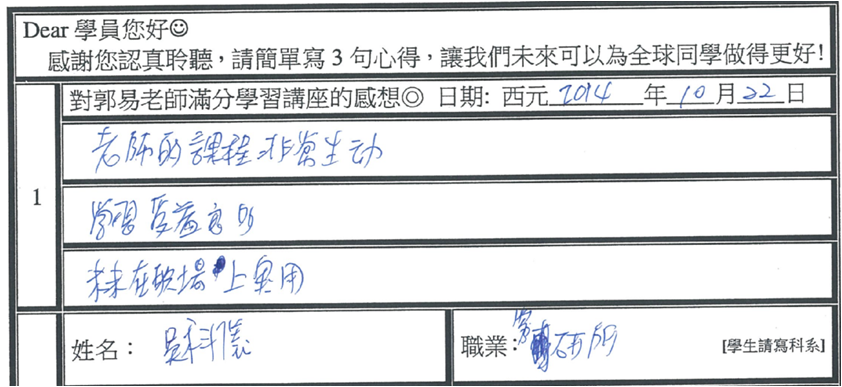 Dear 學員您好☺
感謝您認真聆聽，請簡單寫 3 句心得，讓我們未來可以為全球同學做得更好!
1
對郭易老師滿分學習講座的感想◎ 日期: 西元 2014 年 10 月 22 日
老師的課程非常生动
學習受益良
未來在職場上實用
姓名：
職業： 研所 [學生請寫科系]